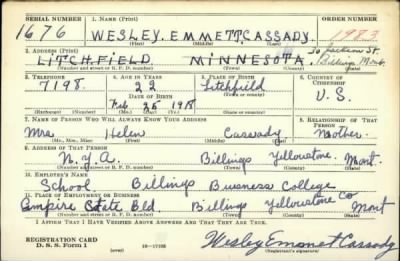 SERIAL NUMBER 1. NAME (Print) ORDER NUMBER
1676 WESLEY. EMMETT. CASSADY. 1983
(First) (Middle) (Last)
2. ADDRESS (Print) 30 Jackson St.
LITCHFIELD MINNESOTA. Billings Mont.
(Number and street or R. F. D. number) (Town) (County) (State)
3. TELEPHONE 4. AGE IN YEARS 5. PLACE OF BIRTH 6. COUNTRY OF CITIZENSHIP
7198. 22 Litchfield
DATE OF BIRTH (Town or county)
Feb 25 1918 U.S.
(Exchange) (Number) (Mo.) (Day) (Yr.) (State or country)
7. NAME OF PERSON WHO WILL ALWAYS KNOW YOUR ADDRESS 8. RELATIONSHIP OF THAT PERSON
Mrs. Helen Cassady Mother.
(Mr., Mrs., Miss) (First) (Middle) (Last)
9. ADDRESS OF THAT PERSON
N.Y.A. Billings Yellowstone. Mont.
(Number and street or R. F. D. number) (Town) (County) (State)
10. EMPLOYER'S NAME
School Billings Business College
11. PLACE OF EMPLOYMENT OR BUSINESS
Empire State Bld. Billings Yellowstone Co Mont
(Number and street or R. F. D. number) (Town) (County) (State)
I AFFIRM THAT I HAVE VERIFIED ABOVE ANSWERS AND THAT THEY ARE TRUE.
REGISTRATION CARD
D. S. S. Form 1 (over) Wesley Emmet Cassady
(Registrant's signature)